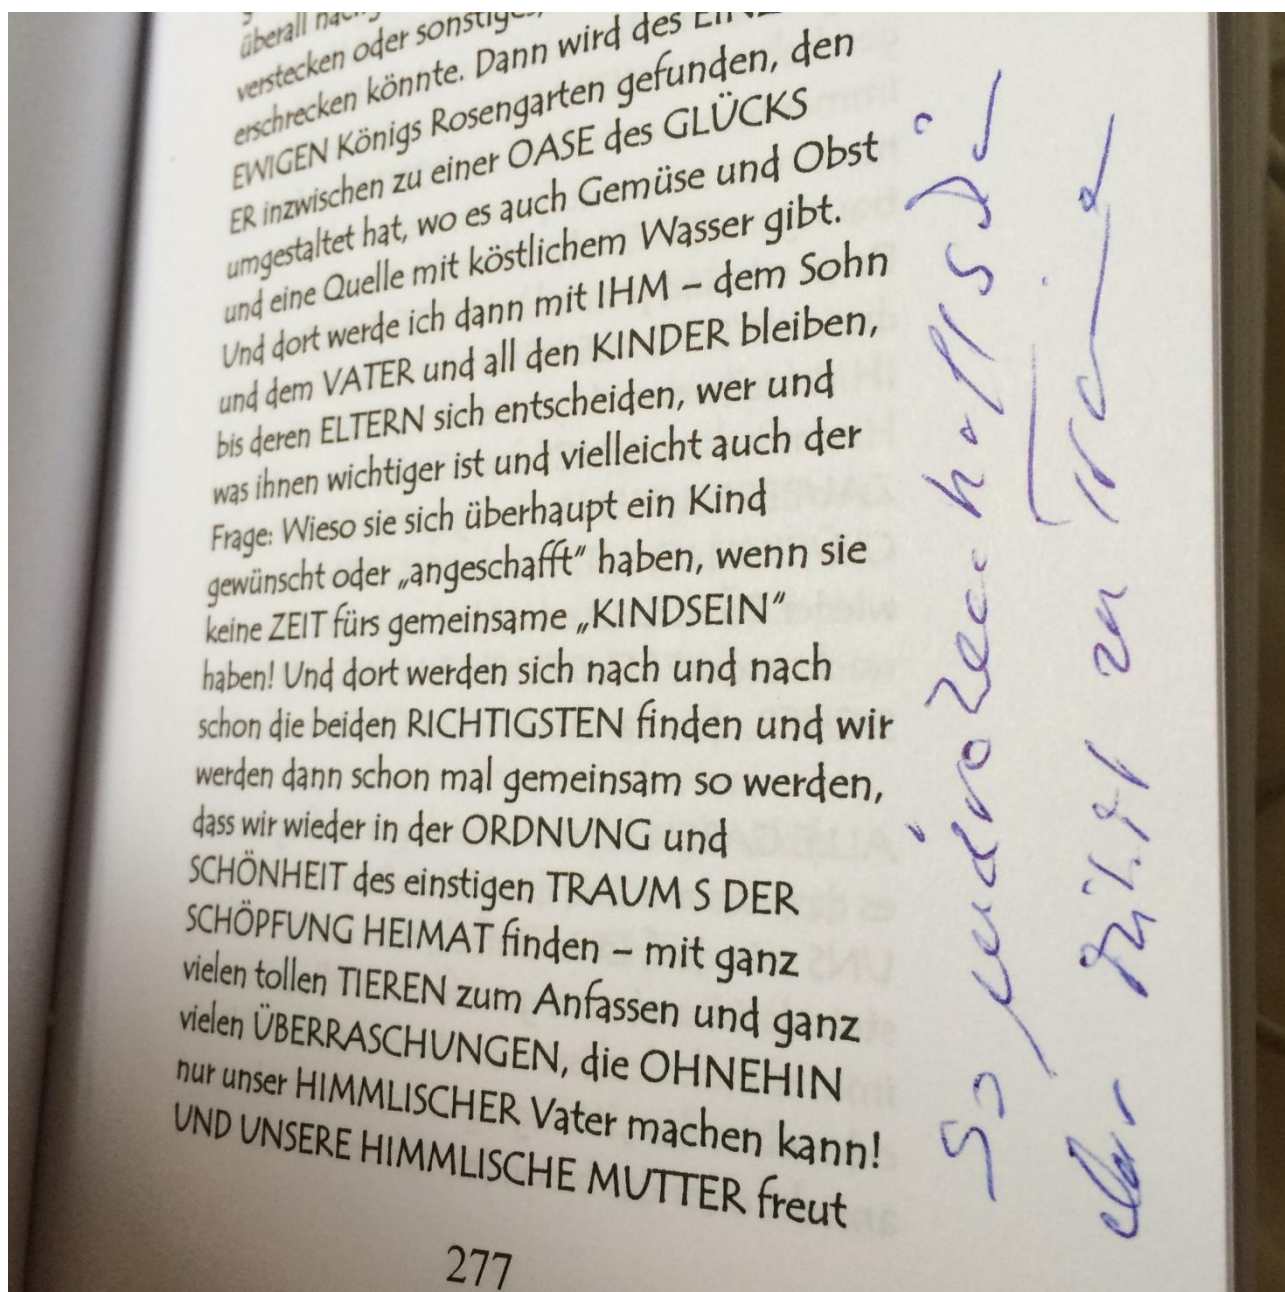 überall
verstecken oder sonstiges,
erschrecken könnte. Dann wird des
EWIGEN Königs Rosengarten gefunden, den
ER inzwischen zu einer OASE des GLÜCKS
umgestaltet hat, wo es auch Gemüse und Obst
und eine Quelle mit köstlichem Wasser gibt.
Und dort werde ich dann mit IHM – dem Sohn
und dem VATER und all den KINDER bleiben,
bis deren ELTERN sich entscheiden, wer und
was ihnen wichtiger ist und vielleicht auch der
Frage: Wieso sie sich überhaupt ein Kind
gewünscht oder „angeschafft“ haben, wenn sie
keine ZEIT fürs gemeinsame „KINDSEIN“
haben! Und dort werden sich nach und nach
schon die beiden RICHTIGSTEN finden und wir
werden dann schon mal gemeinsam so werden,
dass wir wieder in der ORDNUNG und
SCHÖNHEIT des einstigen TRAUM S DER
SCHÖPFUNG HEIMAT finden – mit ganz
vielen tollen TIEREN zum Anfassen und ganz
vielen ÜBERRASCHUNGEN, die OHNEHIN
nur unser HIMMLISCHER Vater machen kann!
UND UNSERE HIMMLISCHE MUTTER freut
277
So
zu